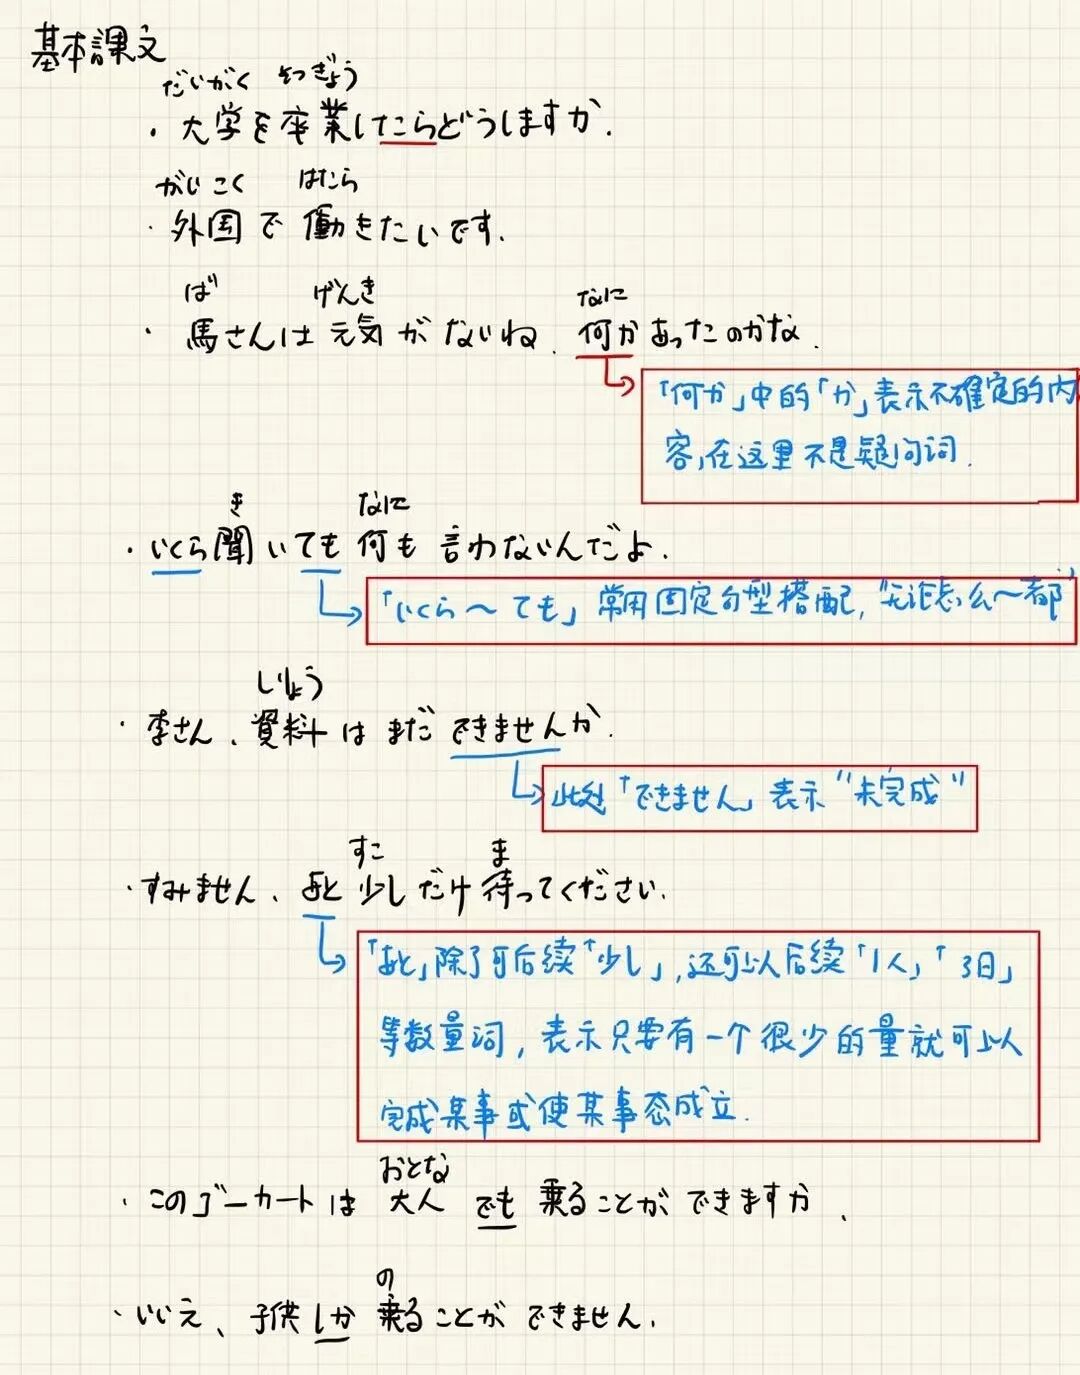 基本課文
だいがく そつぎょう
・大学を卒業したらどうしますか.
がいこく はたら
・外国で働きたいです.
ば げんき なに
・馬さんは元気がないね. 何かあったのかな.
「何か」中的「か」表示不確定的内
容,在这里不是疑问词.
き なに
・いくら聞いても何も言わないんだよ.
「いくら〜ても」常用固定句型搭配,“无论怎么〜都”
しりょう
・李さん、資料はまだできませんか.
此处「できません」表示“未完成”
すこ ま
・すみません、あと少しだけ待ってください.
「あと」除了可后续「少し」,还可以后续「1人」「3日」
等数量词,表示只要有一个很少的量就可以
完成某事或使某事态成立.
おとな
・このゴーカートは大人でも乗ることができますか.
の
・いいえ、子供しか乗ることができません.